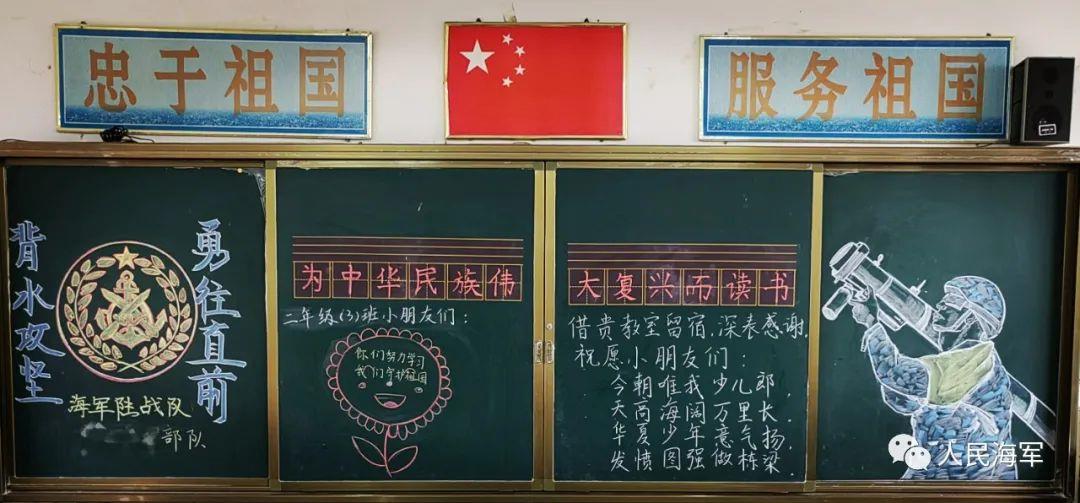 忠于祖国
服务祖国
背水攻坚
勇往直前
海军陆战队
部队
为中华民族伟
二年级(3)班小朋友们:
你们努力学习
我们守护祖国
大复兴而读书
借贵教室留宿,深表感谢.
祝愿小朋友们:
今朝唯我少儿郎,
天高海阔万里长,
华夏少年意气扬,
发愤图强做栋梁.
人民海军